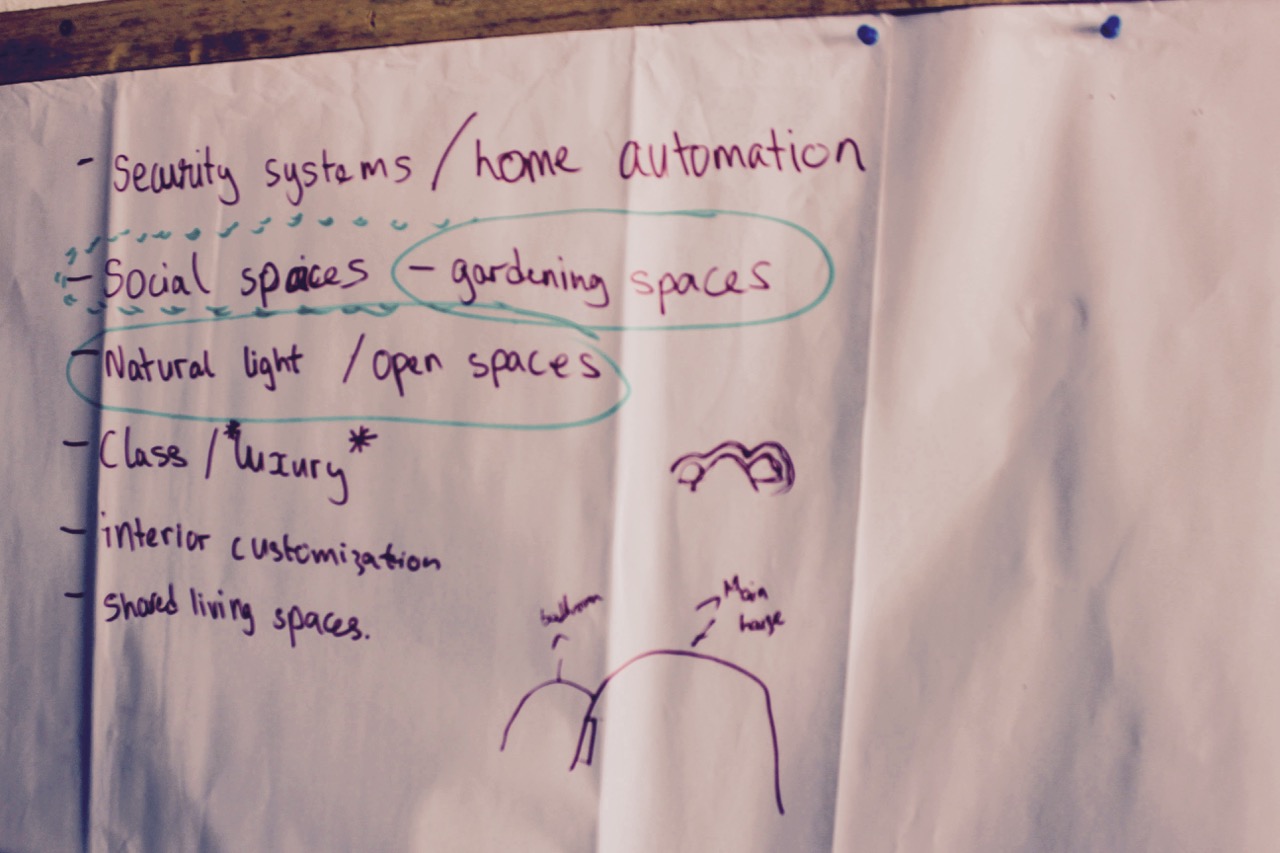 - Security systems / home automation
- Social spaices - gardening spaces
- Natural light / open spaces
- Class / *luxury*
- interior customization
- shared living spaces.
Main
house